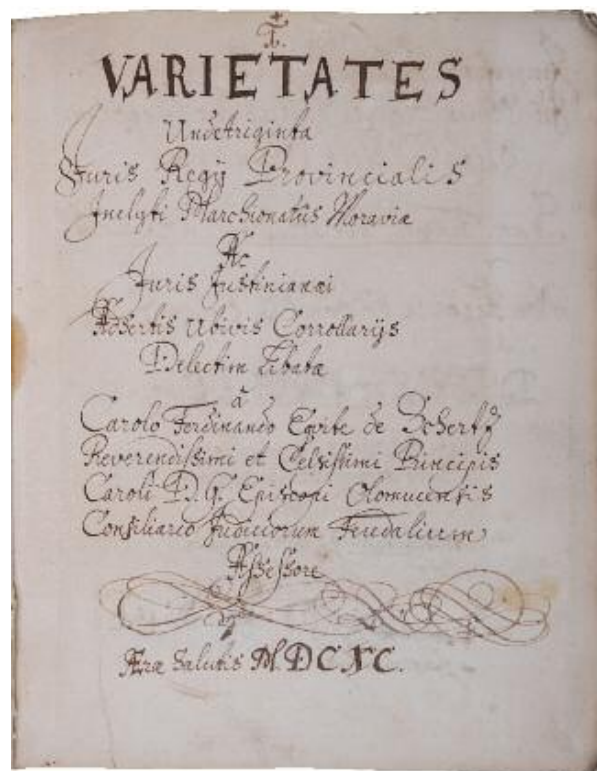 VARIETATES
Undetriginta
Juris Regÿ Provincialis
Inclyti Marchionatûs Moraviæ
Ac
Juris Justinianæi
Adsertis Ubivis Corrollarÿs
Delectim Libatæ
â
Carolo Ferdinando Equite de Schertz
Reverendissimi et Celsissimi Principis
Caroli D. G. Episcopi Olomucensis
Consiliario Judiciorum Feudalium
Assessore
Æræ Salutis M.DCXC.